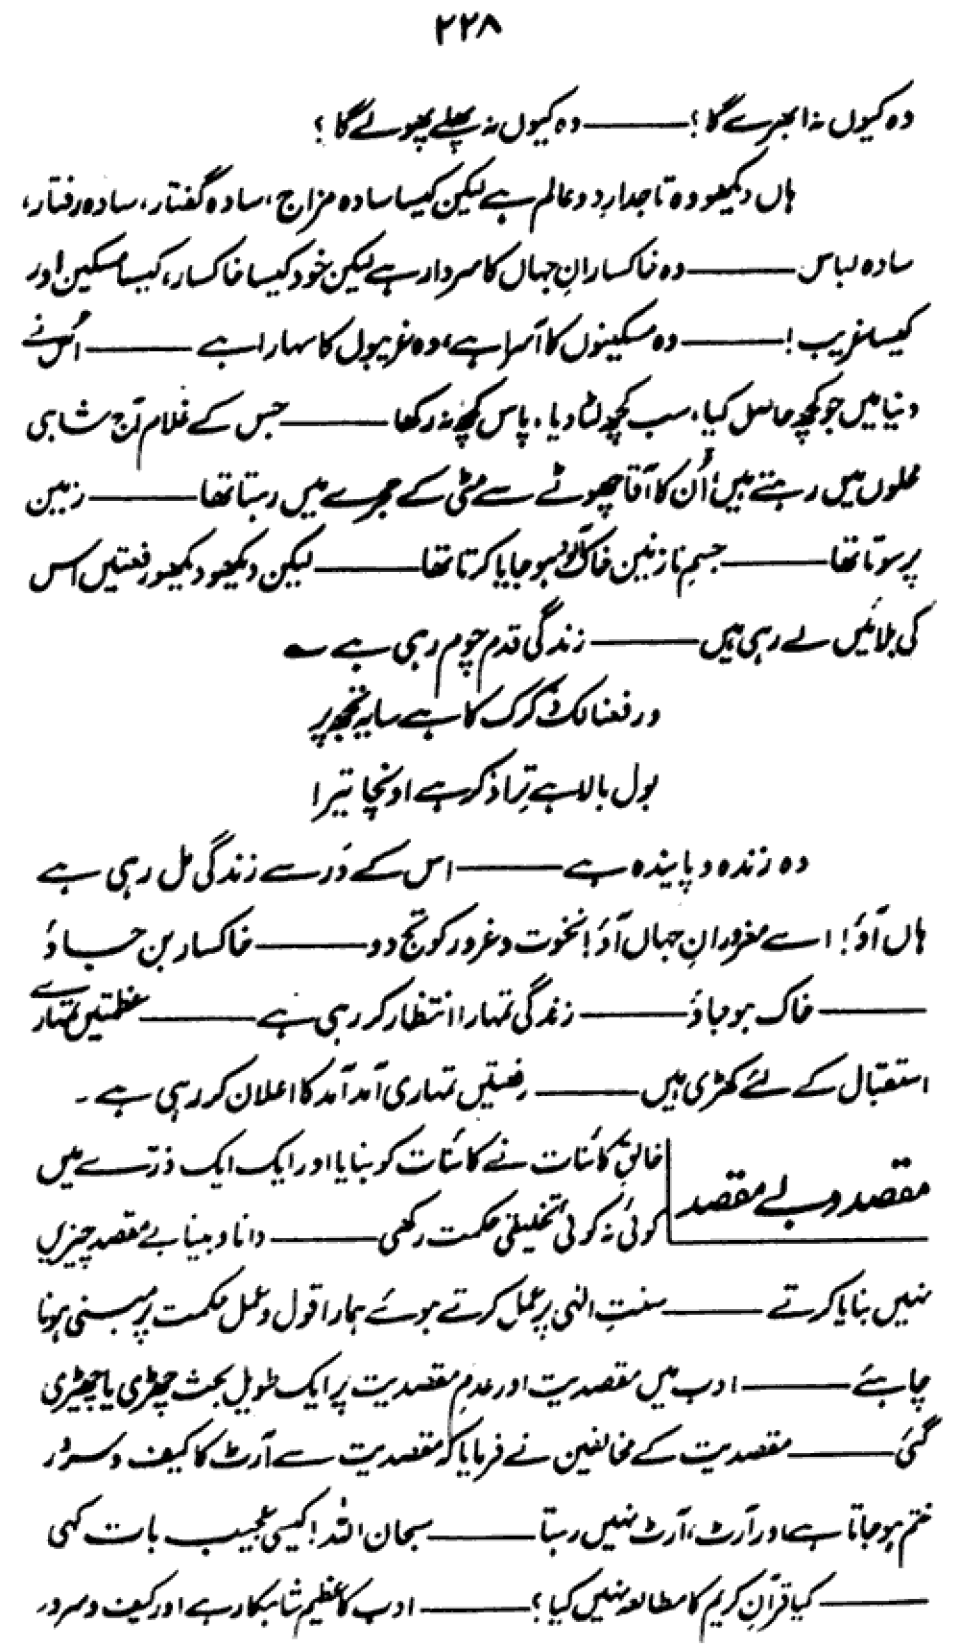 ۲۲۸
وہ کیوں نہ ابھرے گا ؟ ——— وہ کیوں نہ پھلے پھولے گا ؟
ہاں دیکھو وہ تاجدارِ دو عالم ہے لیکن کیسا سادہ مزاج ، سادہ گفتار ، سادہ رفتار ،
سادہ لباس ——— وہ خاکسارانِ جہاں کا سردار ہے لیکن خود کیسا خاکسار ، کیسا مسکین اور
کیسا غریب ! ——— وہ مسکینوں کا آسرا ہے ، وہ غریبوں کا سہارا ہے ——— اُس نے
دنیا میں جو کچھ حاصل کیا ، سب کچھ لٹا دیا ، پاس کچھ نہ رکھا ——— جس کے غلام آج شاہی
محلوں میں رہتے ہیں ، اُن کا آقا چھوٹے سے مٹی کے حجرے میں رہتا تھا ——— زمین
پر سوتا تھا ——— جسمِ نازنین خاک آلود ہو جایا کرتا تھا ——— لیکن دیکھو دیکھو رفعتیں اس
کی بلائیں لے رہی ہیں ——— زندگی قدم چوم رہی ہے ؎
ورفعنا لک ذکرک کا ہے سایہ تجھ پر
بول بالا ہے تِرا ذکر ہے اونچا تیرا
وہ زندہ و پایندہ ہے ——— اس کے دَر سے زندگی مل رہی ہے
ہاں آؤ ! اے مغرورانِ جہاں آؤ ! نخوت و غرور کو تج دو ——— خاکسار بن جاؤ
——— خاک ہو جاؤ ——— زندگی تمہارا انتظار کر رہی ہے ——— عظمتیں تمہارے
استقبال کے لئے کھڑی ہیں ——— رفعتیں تمہاری آمد آمد کا اعلان کر رہی ہے ۔
مقصد و بے مقصد
خالقِ کائنات نے کائنات کو بنایا اور ایک ایک ذرّے میں
کوئی نہ کوئی تخلیقی حکمت رکھی ——— دانا و بینا بے مقصد چیزیں
نہیں بنایا کرتے ——— سنتِ الٰہی پر عمل کرتے ہوئے ہمارا قول و عمل حکمت پر مبنی ہونا
چاہئے ——— ادب میں مقصدیت اور عدمِ مقصدیت پر ایک طویل بحث چھڑی یا چھیڑی
گئی ——— مقصدیت کے مخالفین نے فرمایا کہ مقصدیت سے آرٹ کا کیف و سرور
ختم ہو جاتا ہے اور آرٹ ، آرٹ نہیں رہتا ——— سبحان اللہ ! کیسی عجیب بات کہی
——— کیا قرآنِ کریم کا مطالعہ نہیں کیا ؟ ——— ادب کا عظیم شاہکار ہے اور کیف و سرور